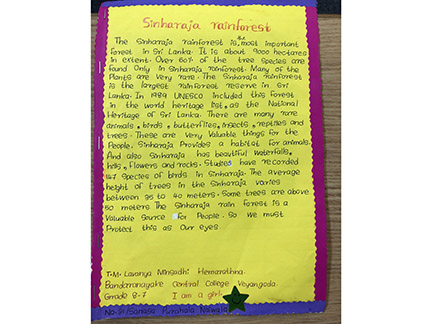 Sinharaja rainforest
The Sinharaja rainforest is the most important
Forest in Sri Lanka. It is about 9000 hectares
in extent. Over 60% of the tree species are
found Only in Sinharaja rainforest. Many of the
Plants are very rare. The Sinharaja rainforest
is the largest rainforest reserve in Sri
Lanka. In 1989 UNESCO included this Forest
in the world heritage list, as the National
Heritage of Sri Lanka. There are many rare
animals, birds, butterflies, insects, reptiles and
trees. These are Very Valuable things for the
People. Sinharaja Provides a habitat for animals.
And also Sinharaja has beautiful waterfalls,
hills, Flowers and rocks. Studies have recorded
147 Species of birds in Sinharaja. The average
height of trees in the Sinharaja varies
between 35 to 40 meters. Some trees are above
50 meters The Sinharaja rain forest is a
Valuable Source for People. So we must
Protect this as Our eyes
T.M. Lavanya Hemarathna.
Bandaranayake Central College Veyangoda.
Grade 8-7 I am a girl.